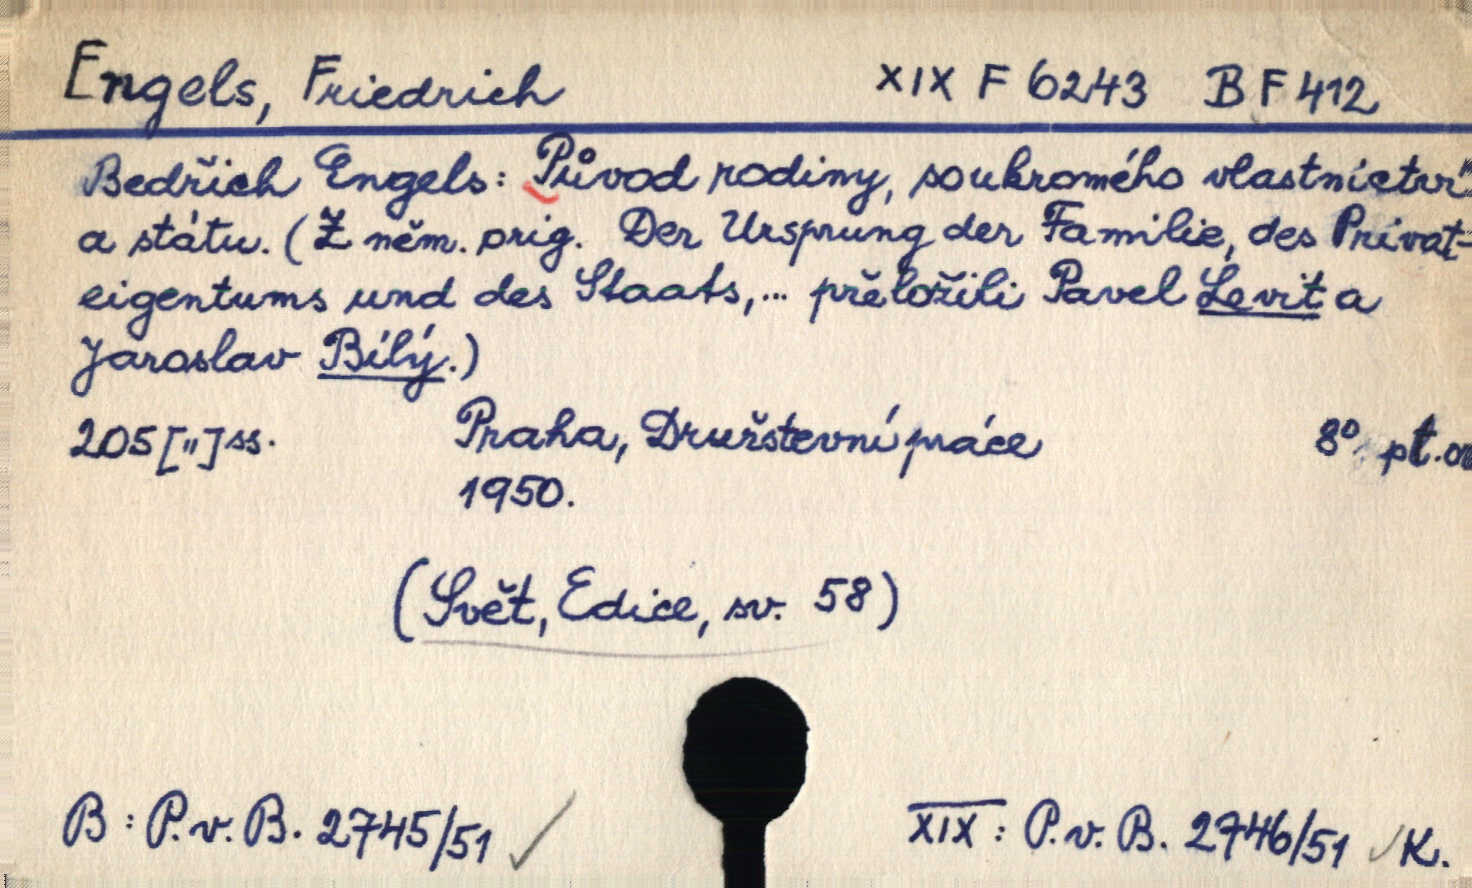 Engels, Friedrich XIX F 6243 BF 412
Bedřich Engels: Původ rodiny, soukromého vlastnictví
a státu. (Z něm. orig. Der Ursprung der Familie, des Privat-
eigentums und des Staats,... přeložili Pavel Levit a
Jaroslav Bílý.)
205 ["] ss. Praha, Družstevní práce 8° pt.
1950.
(Svět, Edice, sv. 58)
B: P.v.B. 2745/51 XIX: P.v.B. 2746/51 K.